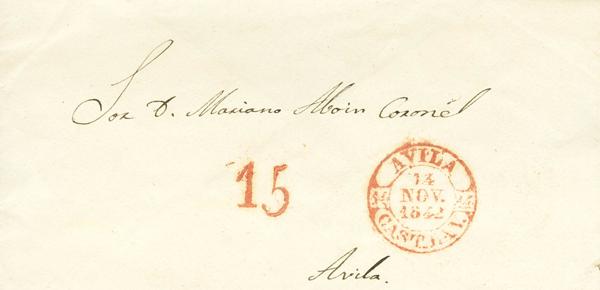 Sor D. Mariano Aboin Coronél
15
AVILA
14
NOV.
1842
CAST. LA V.
Avila.